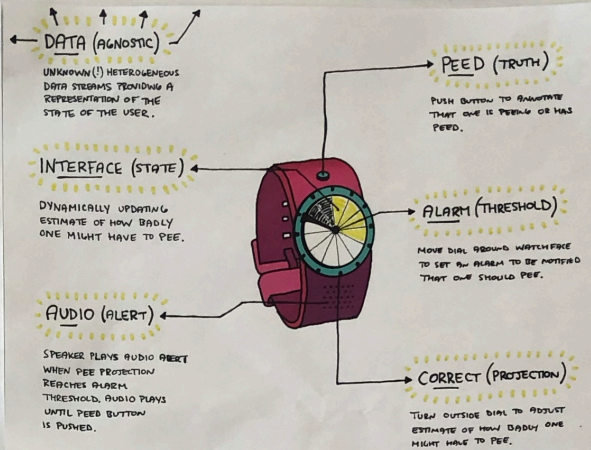 DATA (AGNOSTIC)
UNKNOWN(!) HETEROGENEOUS
DATA STREAMS PROVIDING A
REPRESENTATION OF THE
STATE OF THE USER.
INTERFACE (STATE)
DYNAMICALLY UPDATING
ESTIMATE OF HOW BADLY
ONE MIGHT HAVE TO PEE.
AUDIO (ALERT)
SPEAKER PLAYS AUDIO ALERT
WHEN PEE PROJECTION
REACHES ALARM
THRESHOLD. AUDIO PLAYS
UNTIL PEED BUTTON
IS PUSHED.
PEED (TRUTH)
PUSH BUTTON TO ANNOTATE
THAT ONE IS PEEING OR HAS
PEED.
ALARM (THRESHOLD)
MOVE DIAL AROUND WATCHFACE
TO SET AN ALARM TO BE NOTIFIED
THAT ONE SHOULD PEE.
CORRECT (PROJECTION)
TURN OUTSIDE DIAL TO ADJUST
ESTIMATE OF HOW BADLY ONE
MIGHT HAVE TO PEE.